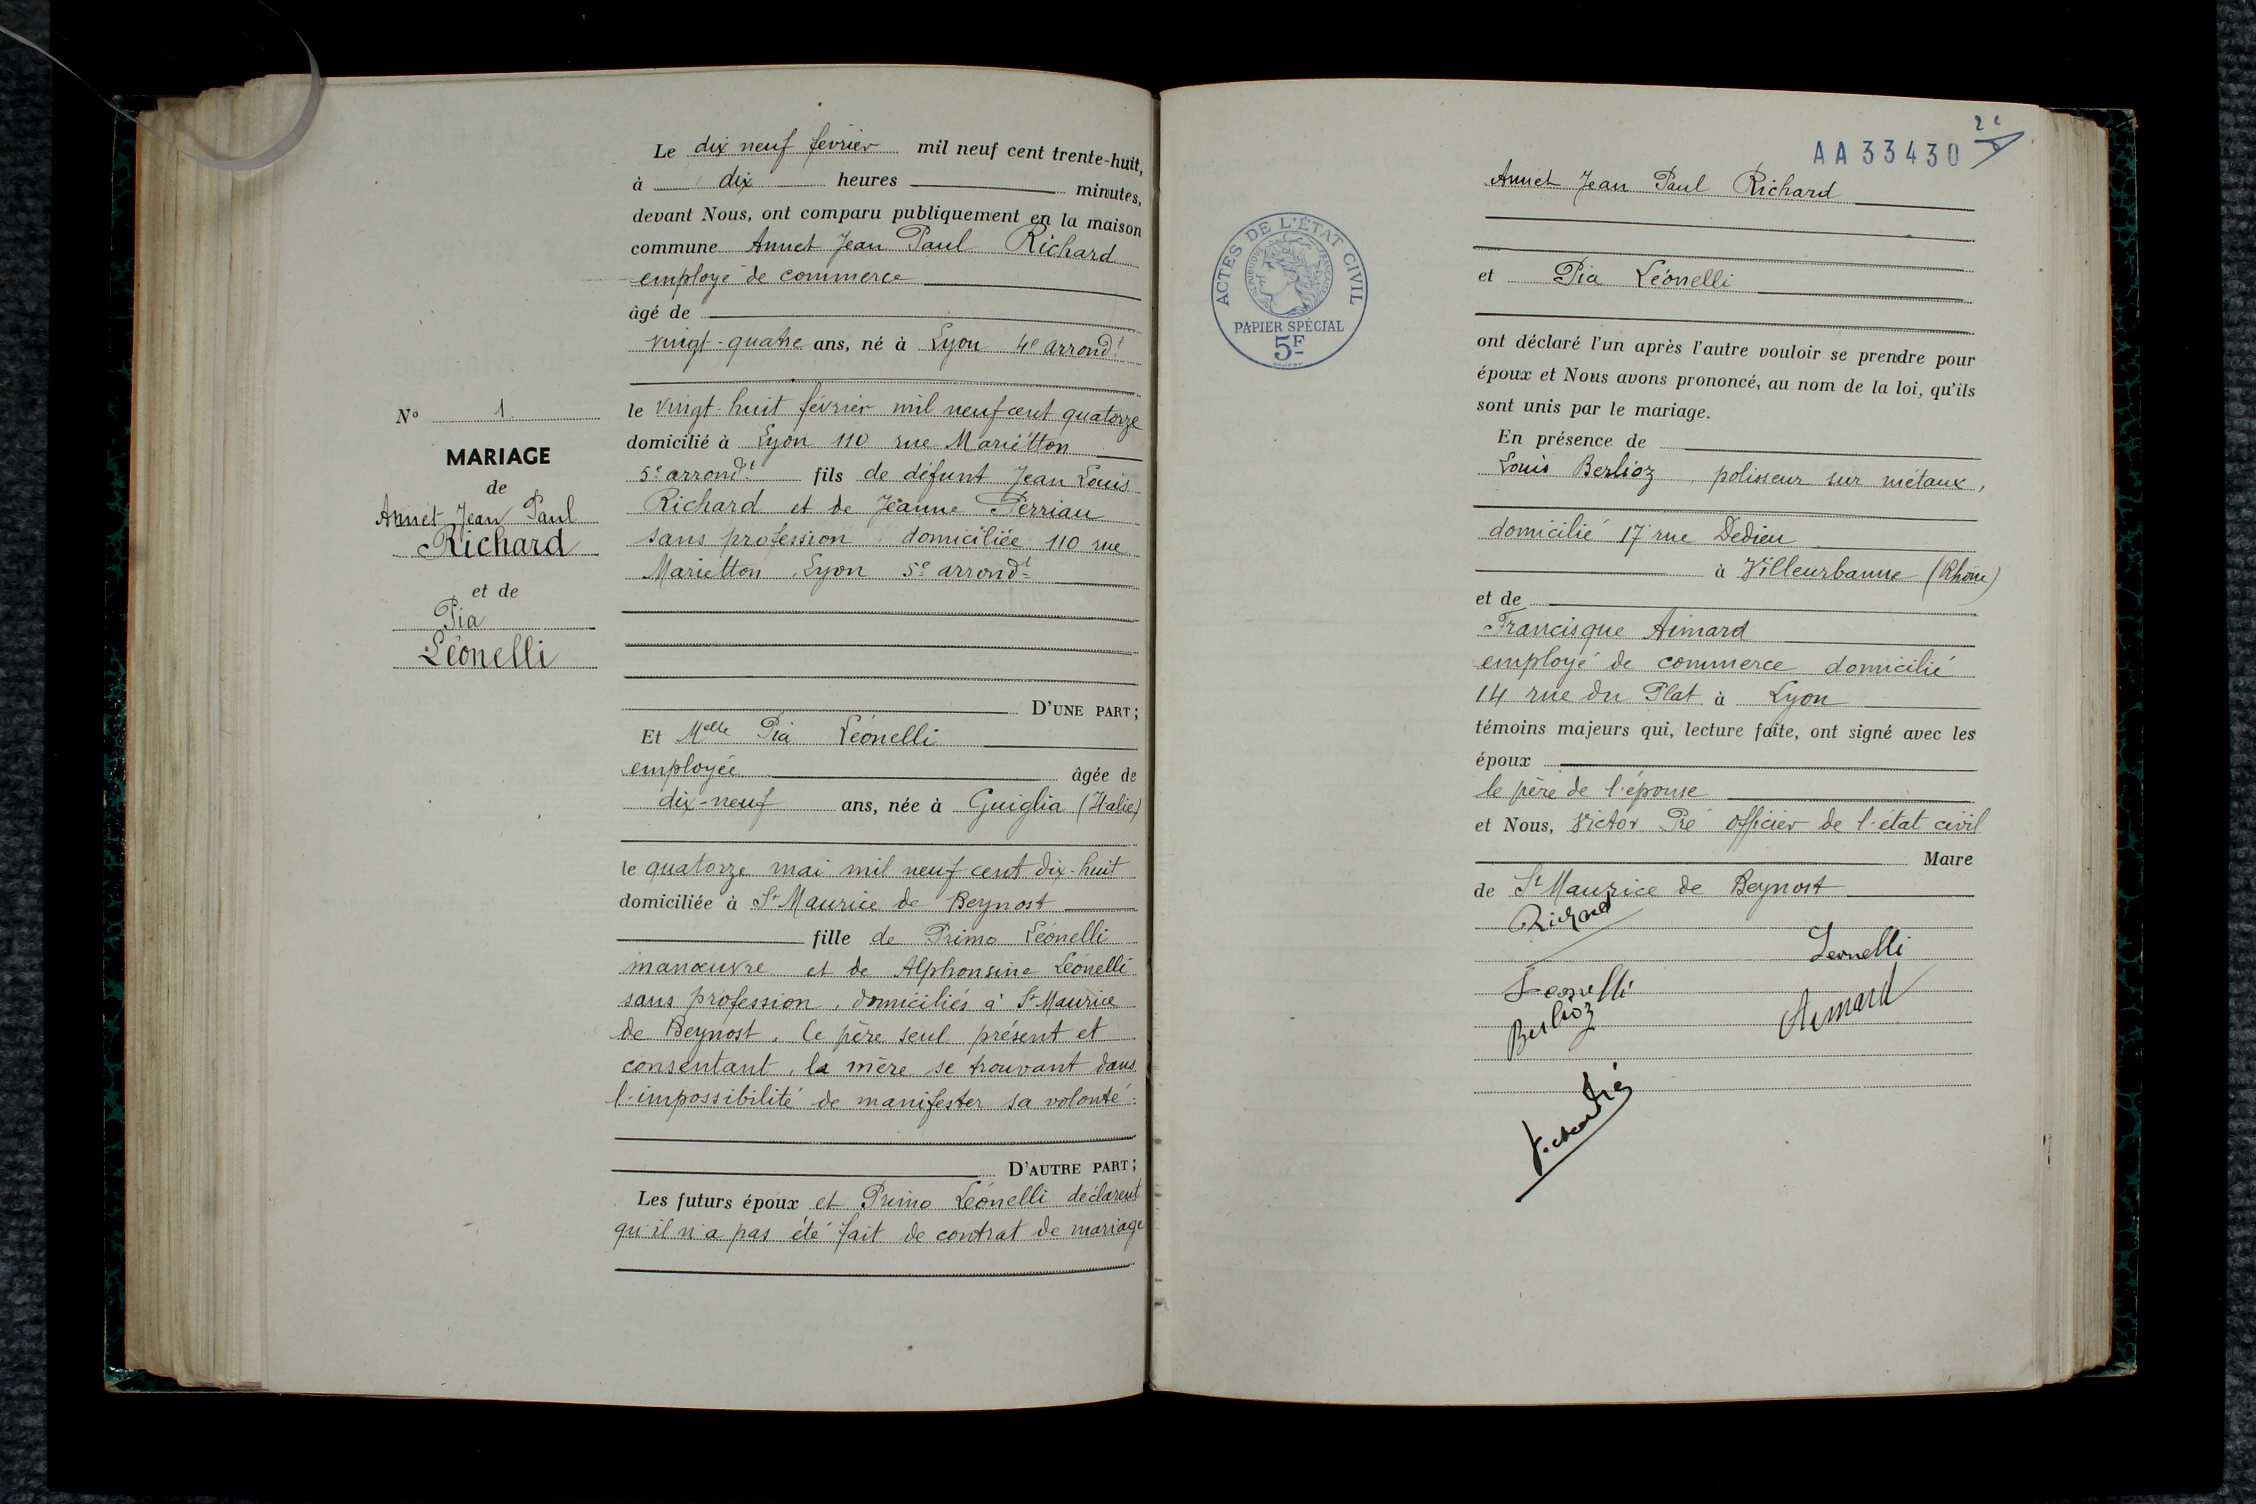 Le dix neuf février mil neuf cent trente-huit,
à dix heures minutes,
devant Nous, ont comparu publiquement en la maison
commune Annet Jean Paul Richard
employé de commerce
âgé de
vingt-quatre ans, né à Lyon 4e arrondt
le vingt-huit février mil neuf cent quatorze
domicilié à Lyon 110 rue Mariétton
5e arrondt fils de défunt Jean Louis
Richard et de Jeanne Perriau
sans profession domiciliée 110 rue
Marietton, Lyon 5e arrondt
D'UNE PART;
Et Melle Pia Léonelli
employée âgée de
dix-neuf ans, née à Guiglia (Italie)
le quatorze mai mil neuf cent dix-huit
domiciliée à St Maurice de Beynost
fille de Primo Léonelli
manœuvre et de Alphonsine Léonelli
sans profession, domiciliés à St Maurice
de Beynost. Le père seul présent et
consentant, la mère se trouvant dans
l'impossibilité de manifester sa volonté.
D'AUTRE PART;
Les futurs époux et Primo Léonelli déclarent
qu'il n'a pas été fait de contrat de mariage
No 1
MARIAGE
de
Annet Jean Paul
Richard
et de
Pia
Léonelli
AA33430
ACTES DE L'ÉTAT CIVIL
PAPIER SPÉCIAL
5F
Annet Jean Paul Richard
et Pia Léonelli
ont déclaré l'un après l'autre vouloir se prendre pour
époux et Nous avons prononcé, au nom de la loi, qu'ils
sont unis par le mariage.
En présence de
Louis Berlioz, polisseur sur métaux,
domicilié 17 rue Dedieu
à Villeurbanne (Rhône)
et de
Francisque Aimard
employé de commerce domicilié
14 rue du Plat à Lyon
témoins majeurs qui, lecture faite, ont signé avec les
époux
le père de l'épouse
et Nous, Victor Pré officier de l'état civil
Maire
de St Maurice de Beynost
Richard
Leonelli
Leonelli
Berlioz
Aimard